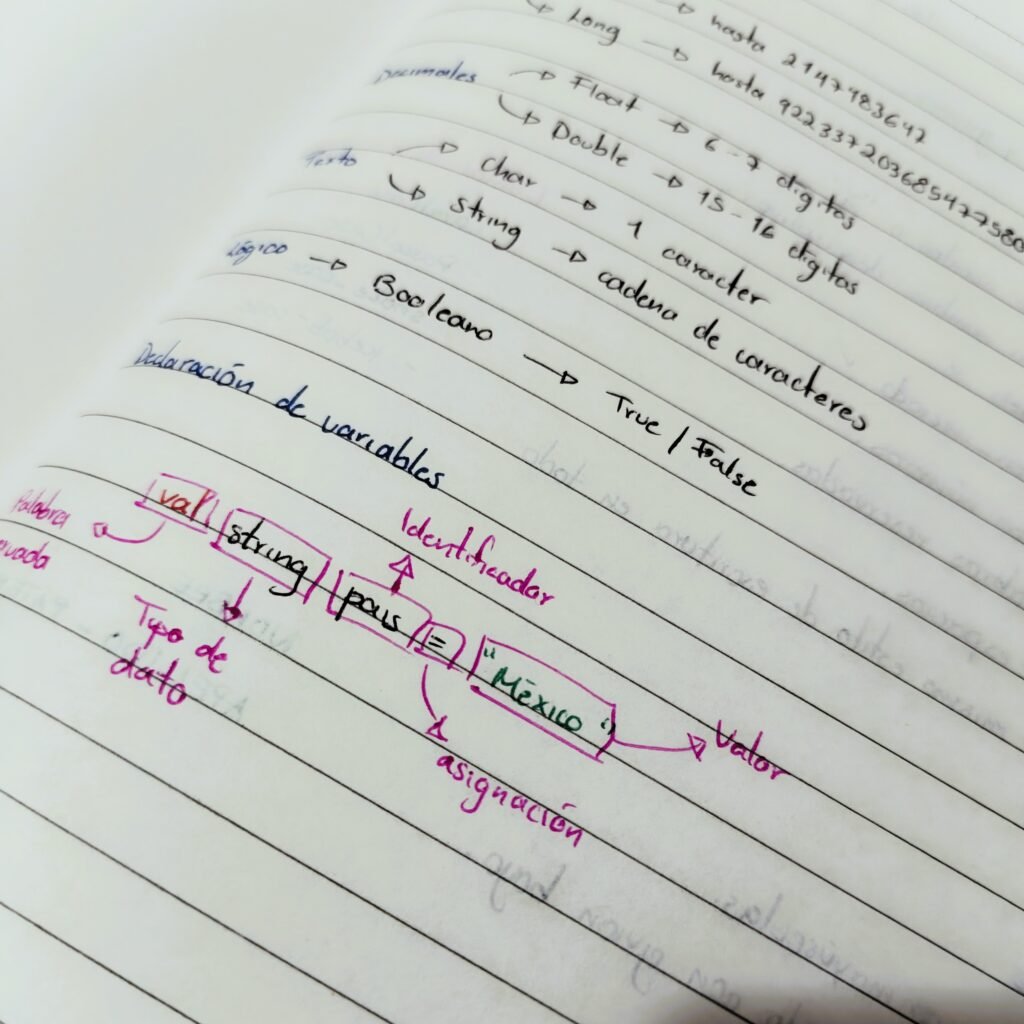 → hasta 2147483647
→ Long → hasta 922337203685477580
Decimales → Float → 6-7 digitos
→ Double → 15-16 digitos
Texto → char → 1 caracter
→ string → cadena de caracteres
Lógico → Booleano → True / False
Declaración de variables
val string pais = "México"
Palabra
Identificador
Tipo de
dato
asignación
Valor